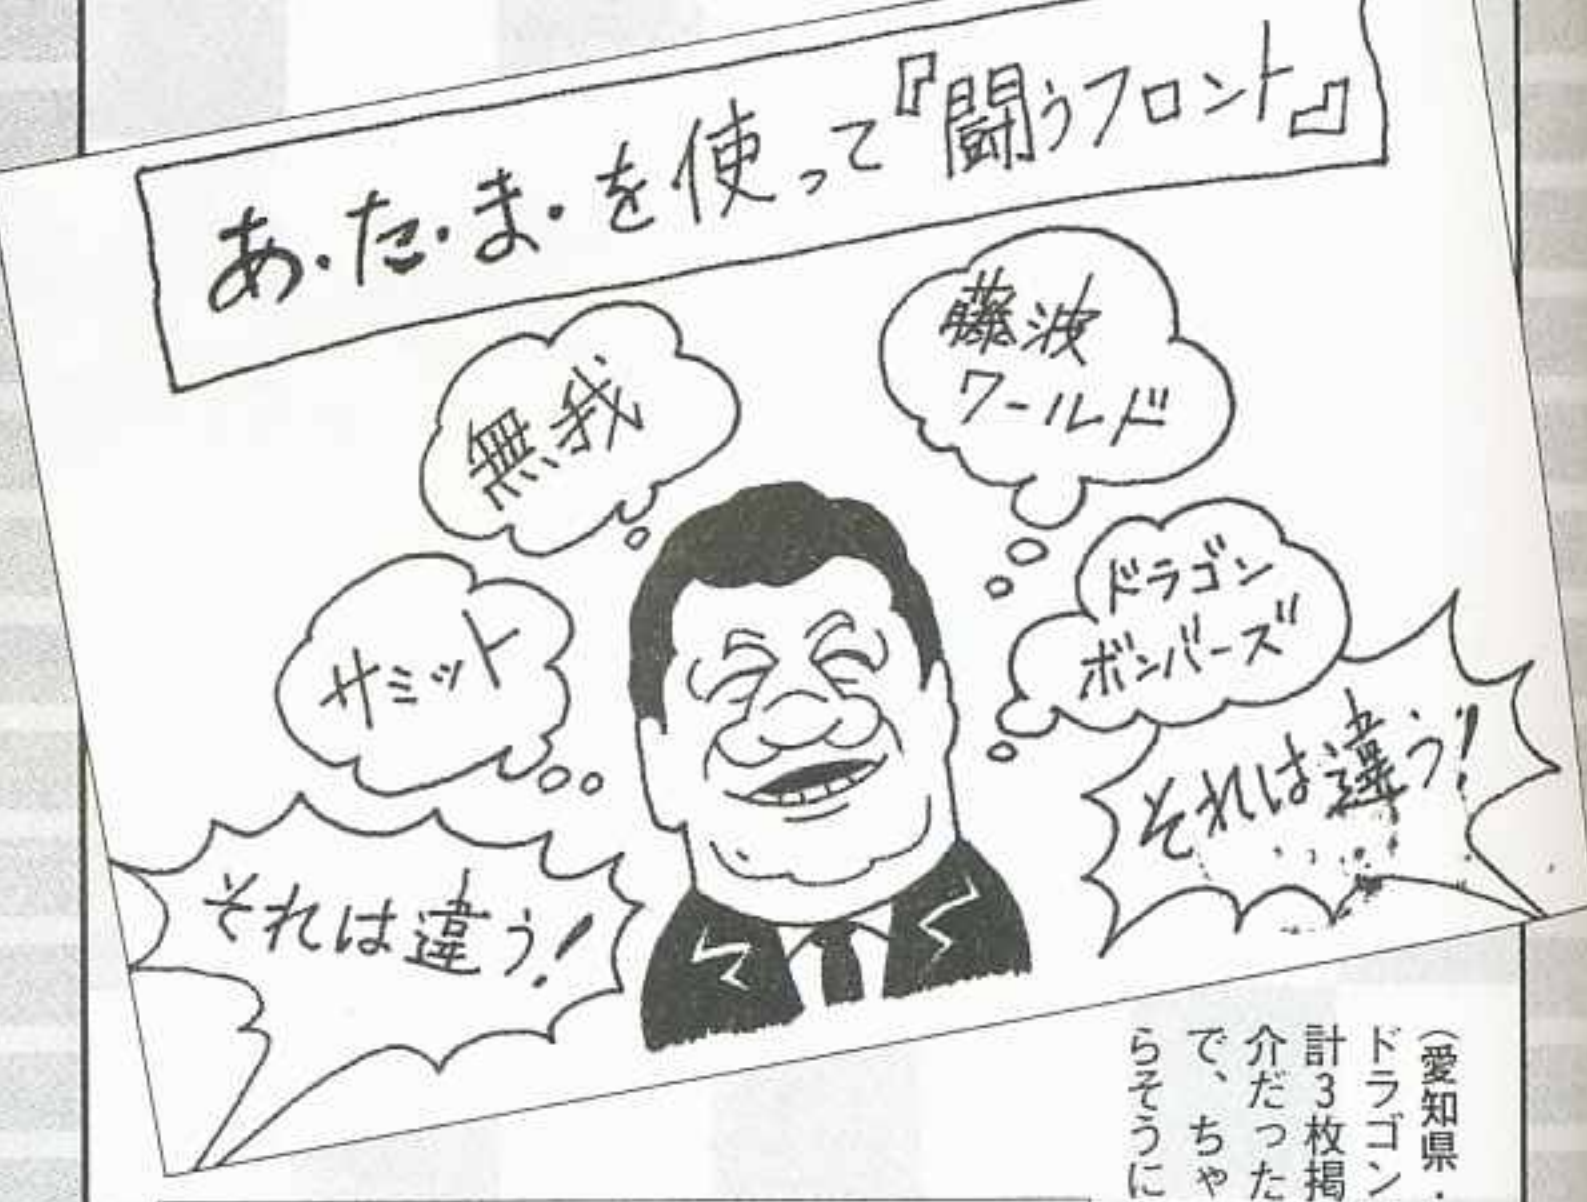 あ・た・ま・を使って『闘うフロント』
無我
藤波
ワールド
サミット
ドラゴン
ボンバーズ
それは違う!
それは違う!
(愛知県・
ドラゴン
計3枚掲
介だった
で、ちゃ
らそうに